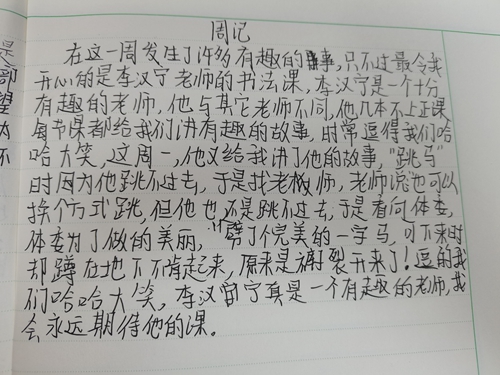 周记
在这一周发生了许多有趣的事,只不过最令我
开心的是李汉宁老师的书法课,李汉宁是一个十分
有趣的老师,他与其它老师不同,他几本不上正课
每节课都给我们讲有趣的故事,时常逗得我们哈
哈大笑,这周一,他又给我讲了他的故事,“跳马”
时因为他跳不过去,于是找老师,老师说也可以
换个方式跳,但他也还是跳不过去,于是看向体委,
体委为了做的美丽,“劈了个完美的一字马,可下来时
却蹲在地下不肯起来,原来是裂开来了!逗的我
们哈哈大笑,李汉宁真是一个有趣的老师,我
会永远期待他的课。